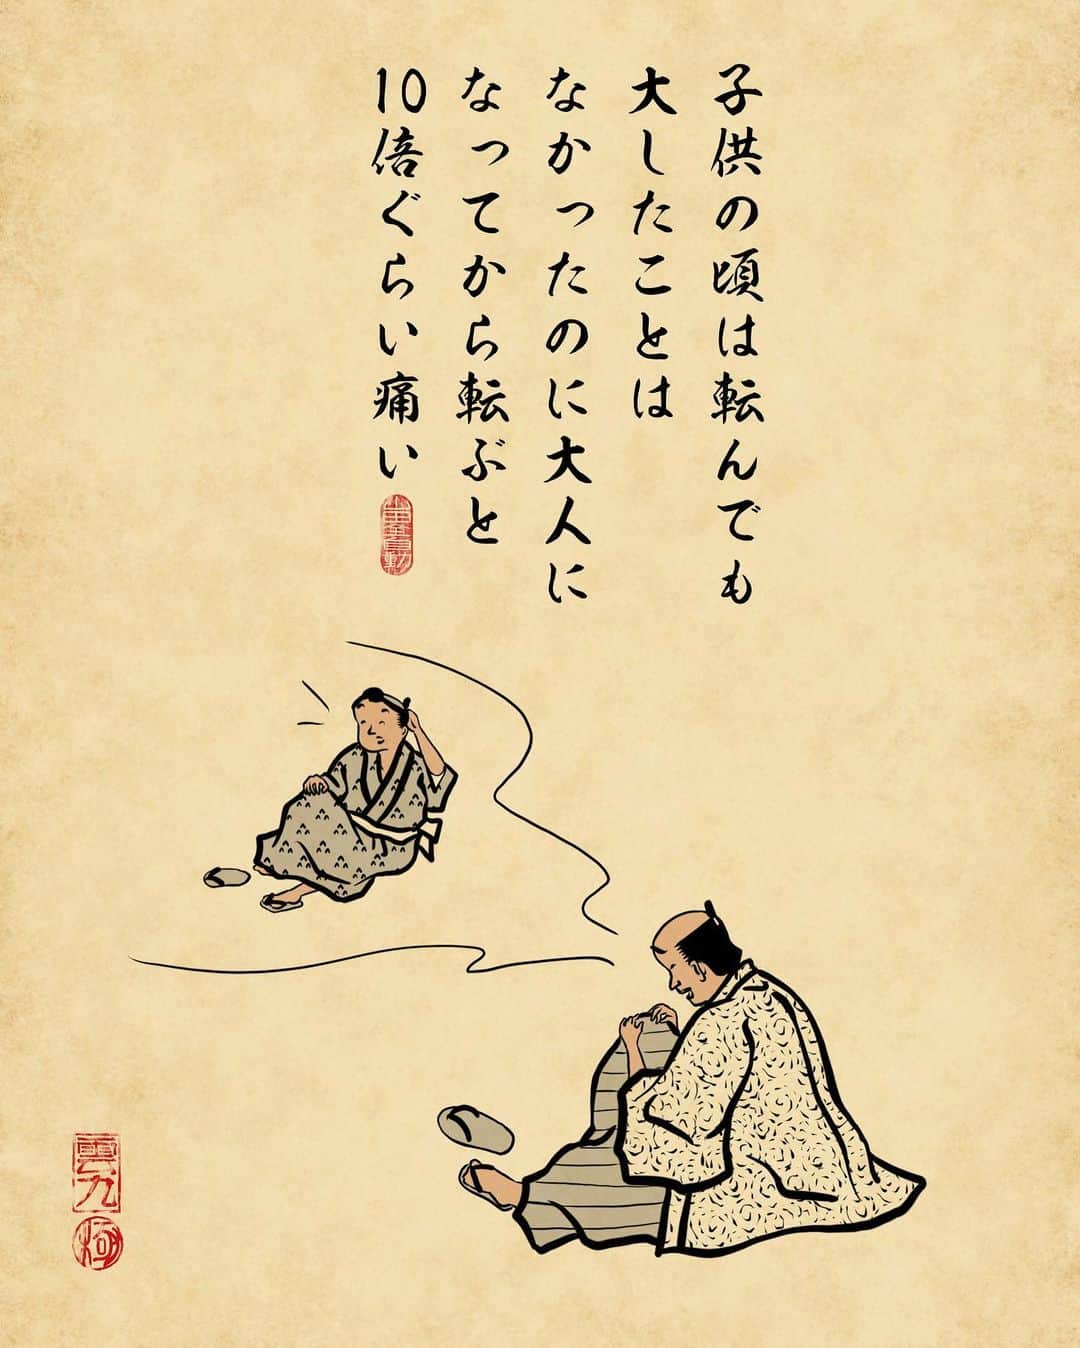 子供の頃は転んでも
大したことは
なかったのに大人に
なってから転ぶと
10倍ぐらい痛い